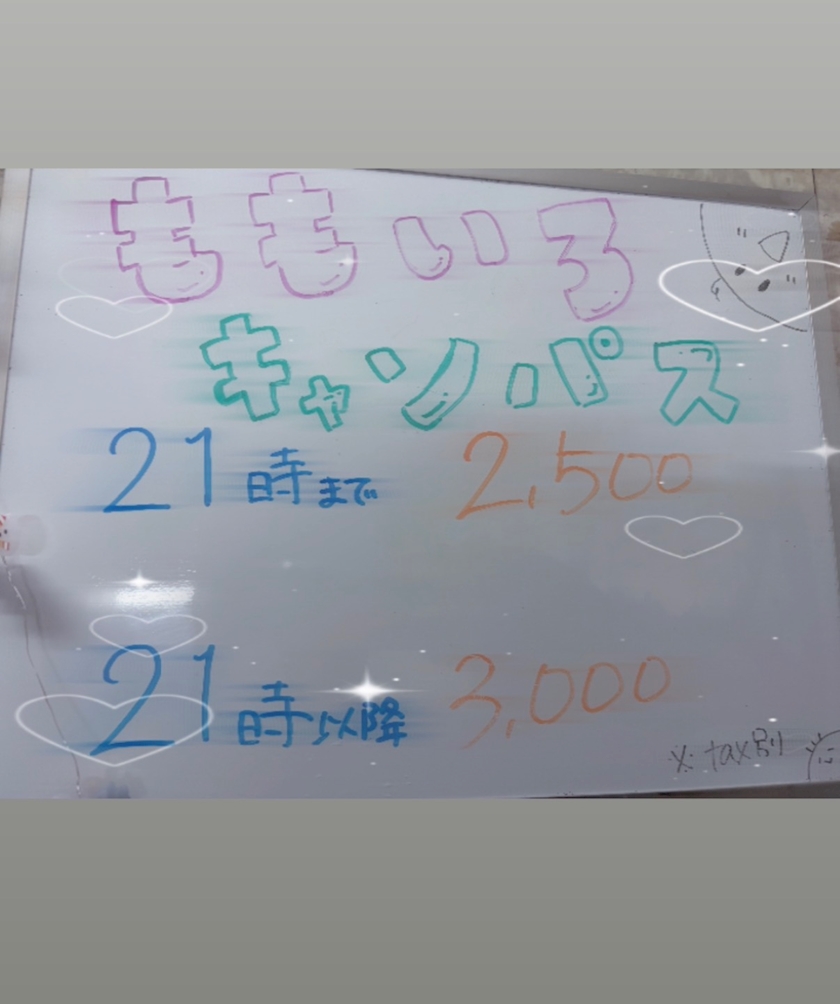 ももいろ
キャンパス
21時まで 2,500
21時以降 3,000
※tax別